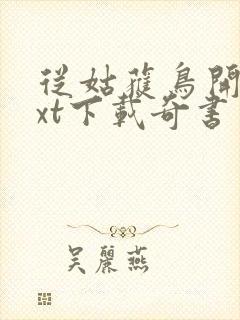 從姑蘿鳥開
xt下載奇書
吳麗燕